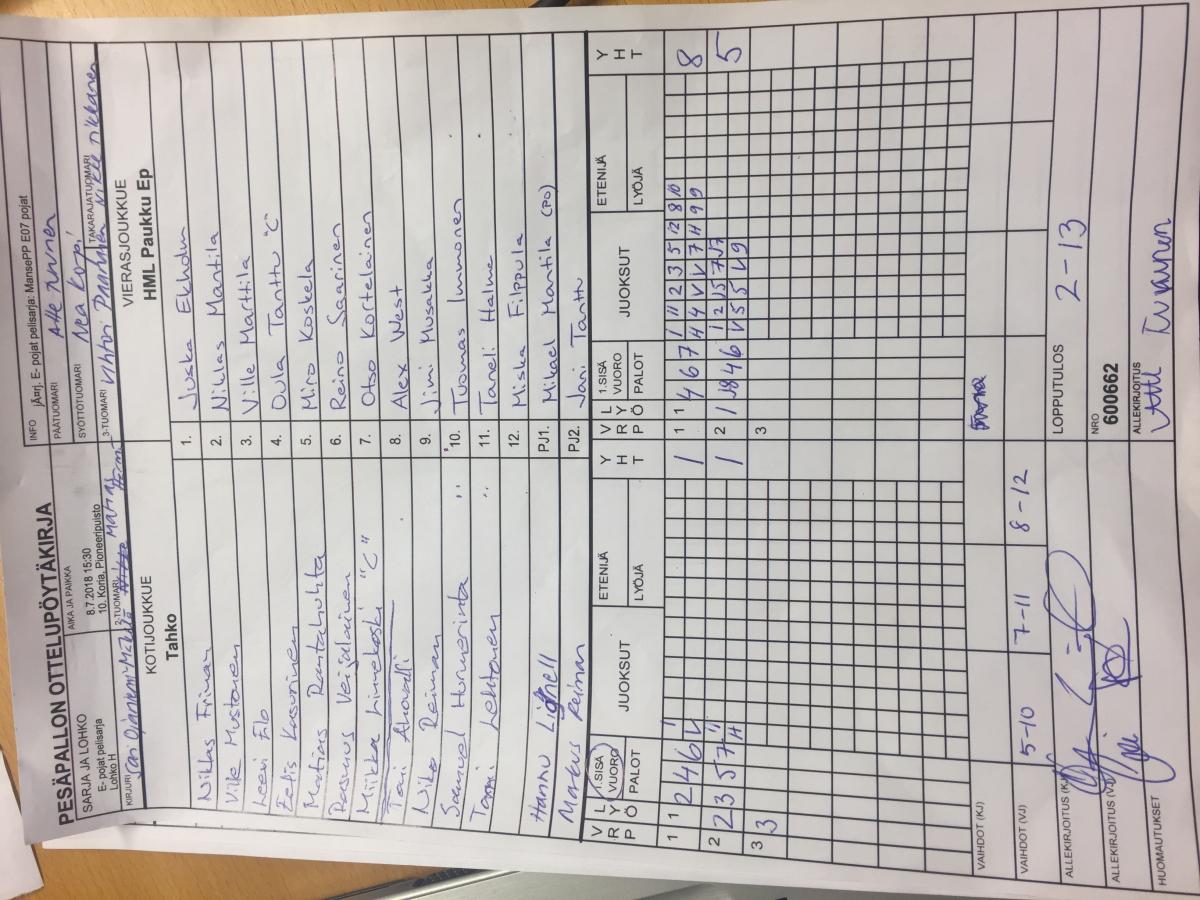 PESÄPALLON OTTELUPÖYTÄKIRJA
SARJA JA LOHKO
E- pojat pelisarja
Lohko H
AIKA JA PAIKKA
8.7.2018 15:30
10. Koria, Pioneeripuisto
INFO jÃ¤rj. E- pojat pelisarja: MansePP E07 pojat
PÄÄTUOMARI Atte
SYÖTTÖTUOMARI Nea Korpi
KIRJURI Sari
2-TUOMARI
3-TUOMARI
TAKARAJATUOMARI
KOTIJOUKKUE
Tahko
VIERASJOUKKUE
HML Paukku Ep
Niklas Friman
1. Juska Ekholm
Ville Mustonen
2. Niklas Mantila
Leevi Elo
3. Ville Marttila
Eelis Kasurinen
4. Oula Tanttu "C"
Matias Rantahuhta
5. Miro Koskela
Rasmus Veijalainen
6. Reino Saarinen
Miikka Linnekoski "C"
7. Otso Kortelainen
8. Alex West
Niko Reiman
9. Jimi Musakka
Samuel Hormerinta
10. Tuomas Immonen
Lehtonen
11. Taneli Halme
12. Miska Filppula
Hannu Lignell
PJ1. Mikael Mantila (PO)
Markus Reiman
PJ2. Jani Tanttu
V R P
L Y Ö
1.SISÄ VUORO
PALOT
JUOKSUT
ETENIJÄ
LYÖJÄ
Y H T
V R P
L Y Ö
1.SISÄ VUORO
PALOT
JUOKSUT
ETENIJÄ
LYÖJÄ
Y H T
1 1 2 4 6 11 V 1
1 1 4 6 7 1 11 2 3 5 12 8 10 8
H 4 V V 7 H 9 9
2 2 3 5 7 11 H 1
2 1 4 6 5
V 5 5 V 9
3 3
3
VAIHDOT (KJ)
VAIHDOT (VJ) 5-10 7-11 8-12
ALLEKIRJOITUS (KJ)
LOPPUTULOS 2-13
ALLEKIRJOITUS (VJ)
NRO
600662
HUOMAUTUKSET
ALLEKIRJOITUS